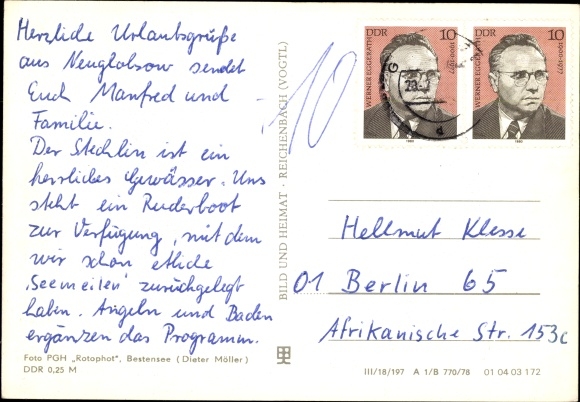 Herzliche Urlaubsgrüße
aus Neuglobsow sendet
Euch Manfred und
Familie.
Der Stechlin ist ein
herrliches Gewässer. Uns
steht ein Ruderboot
zur Verfügung, mit dem
wir schon etliche
„Seemeilen" zurückgelegt
haben. Angeln und Baden
ergänzen das Programm.
Foto PGH „Rotophot", Bestensee (Dieter Möller)
DDR 0,25 M
BILD UND HEIMAT · REICHENBACH (VOGTL)
10
DDR 10
WERNER EGGERATH 1900-1977
1980
DDR 10
WERNER EGGERATH 1900-1977
1980
Hellmut Klesse
01 Berlin 65
Afrikanische Str. 153c
III/18/197 A 1/B 770/78 01 04 03 172